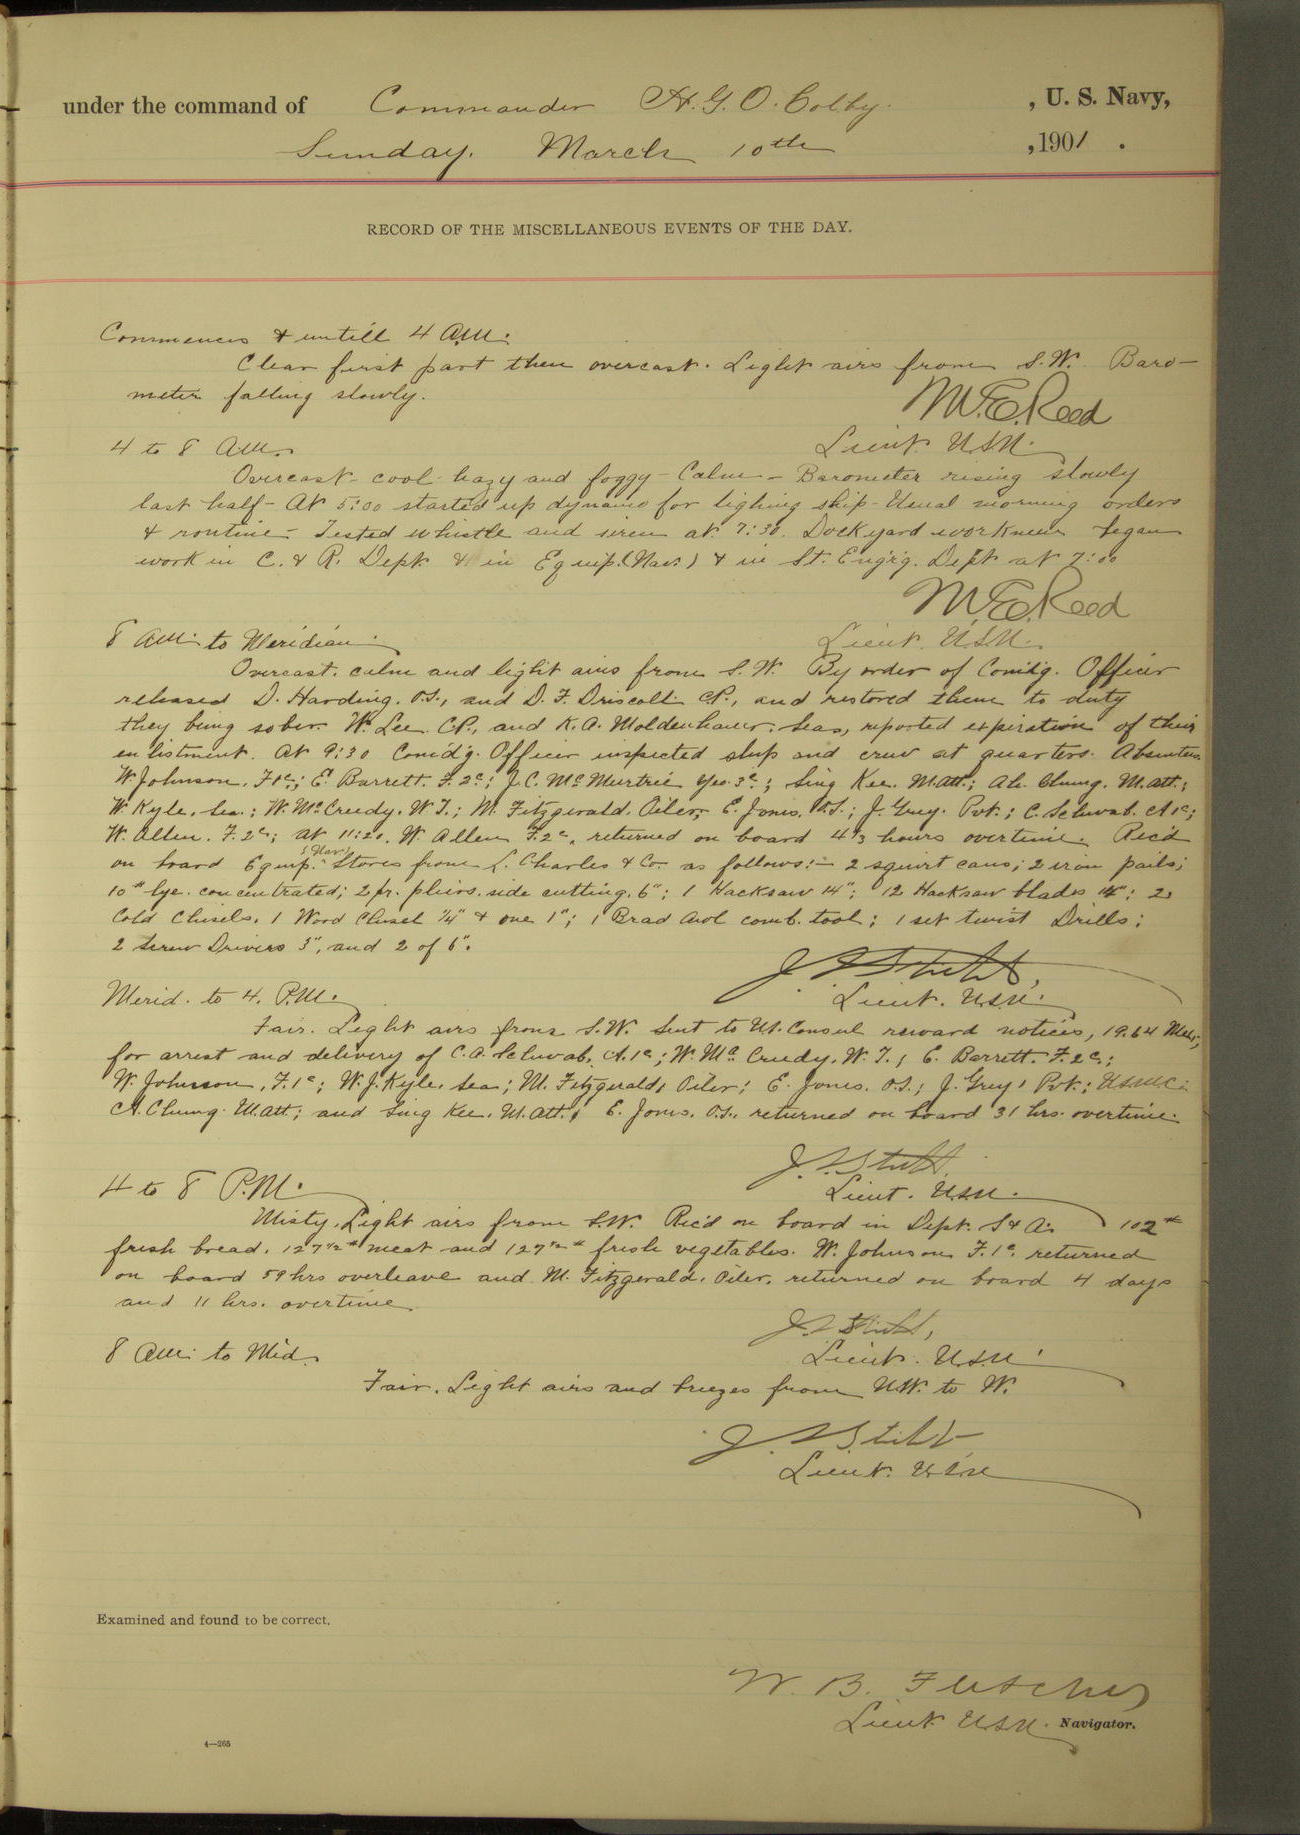 under the command of Commander H.G.O. Colby. , U. S. Navy,
Sunday. March 10th ,1901 .
RECORD OF THE MISCELLANEOUS EVENTS OF THE DAY.
Commences & untill 4 A.M.
Clear first part then overcast. Light airs from S.W. Baro-
meter falling slowly.
M.E. Reed
Lieut. U.S.N.
4 to 8 A.M.
Overcast- cool hazy and foggy- Calm- Barometer rising slowly
last half- At 5:00 started up dynamo for lighing ship- Usual morning orders
& routine- Tested whistle and siren at 7:30. Dock yard workmen began
work in C. & R. Dept & in Equip.(Nav.) & in St. Eng'r'g. Dept at 7:00
M.E. Reed
Lieut. U.S.N.
8 A.M. to Meridian.
Overcast. calm and light airs from S.W. By order of Com'd'g. Officer
released D. Harding. O.S., and D. F. Driscoll C.P., and restored them to duty
they being sober. W. Lee C.P., and K. A. Moldenhauer. Sea, reported expiration of their
enlistment. At 9:30 Com'd'g. Officer inspected ship and crew at quarters. Absentees
W. Johnson. F.1c.; E. Barrett. F.2c; J.C. McMurtrie Yeo.3c; Sing Kee. M.Att.; Ah. Chung. M.att.;
W. Kyle, Sea.; W. McCreedy. W.T.; M. Fitzgerald. Oiler; E. Jones. O.S.; J. Grey. Pvt.; C. Schwab. A1c;
W. Allen. F.2c; at 11:20. W. Allen F.2c. returned on board 4 1/3 hours overtime. Rec'd
on board Equip. (Nav.) Stores from L. Charles & Co. as follows:- 2 squirt cans; 2 iron pails;
10# lye. concentrated; 2 pr. pliers. side cutting. 6"; 1 Hacksaw 14"; 12 Hacksaw blades 14"; 2
Cold Chisels. 1 Wood Chisel ¼" & one 1"; 1 Brad Awl comb. tool; 1 set twist Drills;
2 Screw Drivers 3", and 2 of 6".
Lieut. U.S.N.
Merid. to 4. P.M.
Fair. Light airs from S.W. Sent to U.S. Consul reward notices, 19.64 Mex.,
for arrest and delivery of C.A. Schwab. A.1c; W. McCreedy. W.T.; E. Barrett. F.2c.;
W. Johnson, F.1c; W.J. Kyle. Sea; M. Fitzgerald, Oiler; E. Jones. O.S.; J. Grey, Pvt.; U.S.M.C.;
A. Chung. M.att; and Sing Kee. M.att.; E. Jones. O.S., returned on board 31 hrs. overtime.
Lieut. U.S.N.
4 to 8 P.M.
Misty. Light airs from S.W. Rec'd on board in Dept. S & A. 102#
fresh bread. 127½# meat and 127½# fresh vegetables. W. Johnson F.1c. returned
on board 59 hrs overleave and M. Fitzgerald. Oiler. returned on board 4 days
and 11 hrs. overtime.
Lieut. U.S.N.
8 A.M. to Mid.
Fair. Light airs and breezes from N.W. to W.
Lieut. U.S.N.
Examined and found to be correct.
W. B. Fletcher
Lieut U.S.N. Navigator.
4—265